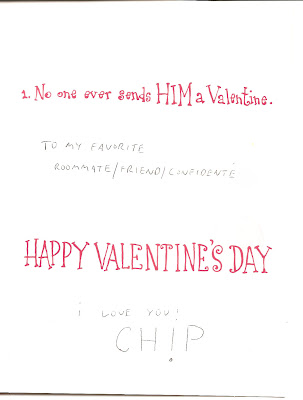 1. No one ever sends HIM a Valentine.
TO MY FAVORITE
ROOMMATE/FRIEND/CONFIDENTÉ
HAPPY VALENTINE'S DAY
i LOVE YOU!
CH!P